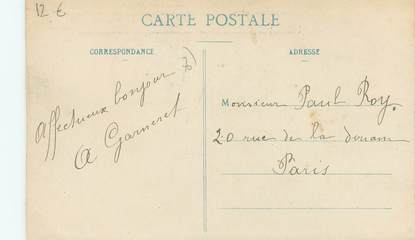 12 €
CARTE POSTALE
CORRESPONDANCE
ADRESSE
Affectueux bonjour
A Garneret
Monsieur Paul Roy.
20 rue de la douane
Paris